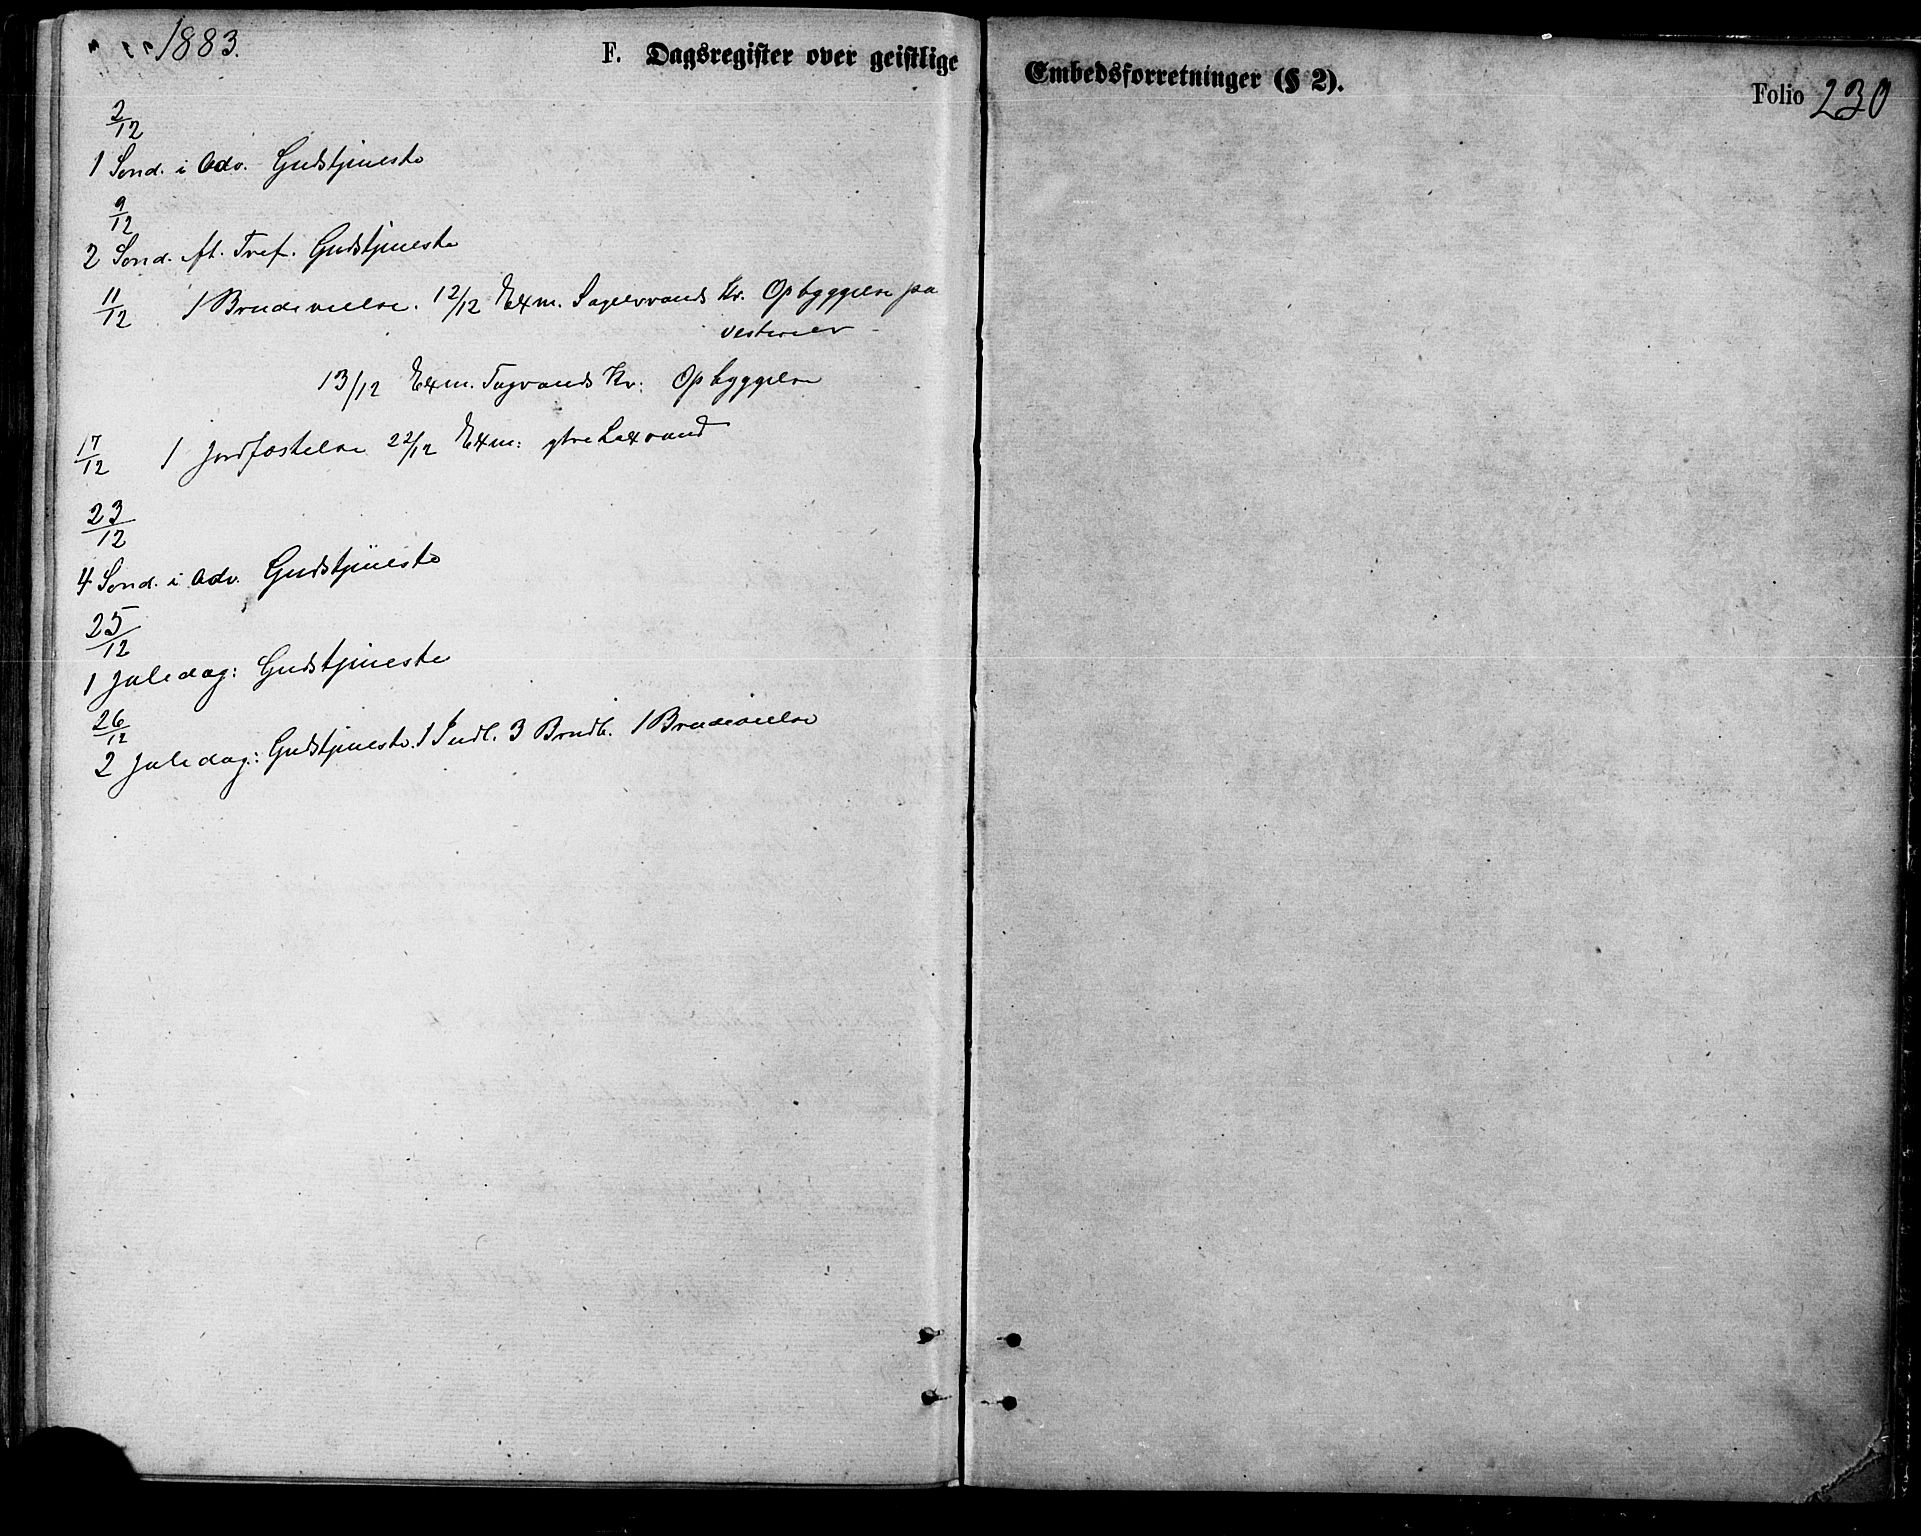 1883.
F. Dagsregister over geistlige Embedsforretninger (§ 2).
Folio 230
2/12
1 Sønd. i Adv. Gudstjeneste
9/12
2 Sønd. Gudstjeneste
11/12 1 Brudevielse. 12/12 Exm. Sagelvvands Kr. Opbyggelse pa
13/12 Exm. Tagvands Kr: Opbyggelse
17/12 1 Jordfæstelse 22/12 Exm: ytre Laxvand
23/12
4 Sønd. i Adv. Gudstjeneste
25/12
1 Juledag: Gudstjeneste
26/12
2 Juledag: Gudstjeneste. 1 Indl. 3 Brudb. 1 Brudevielse